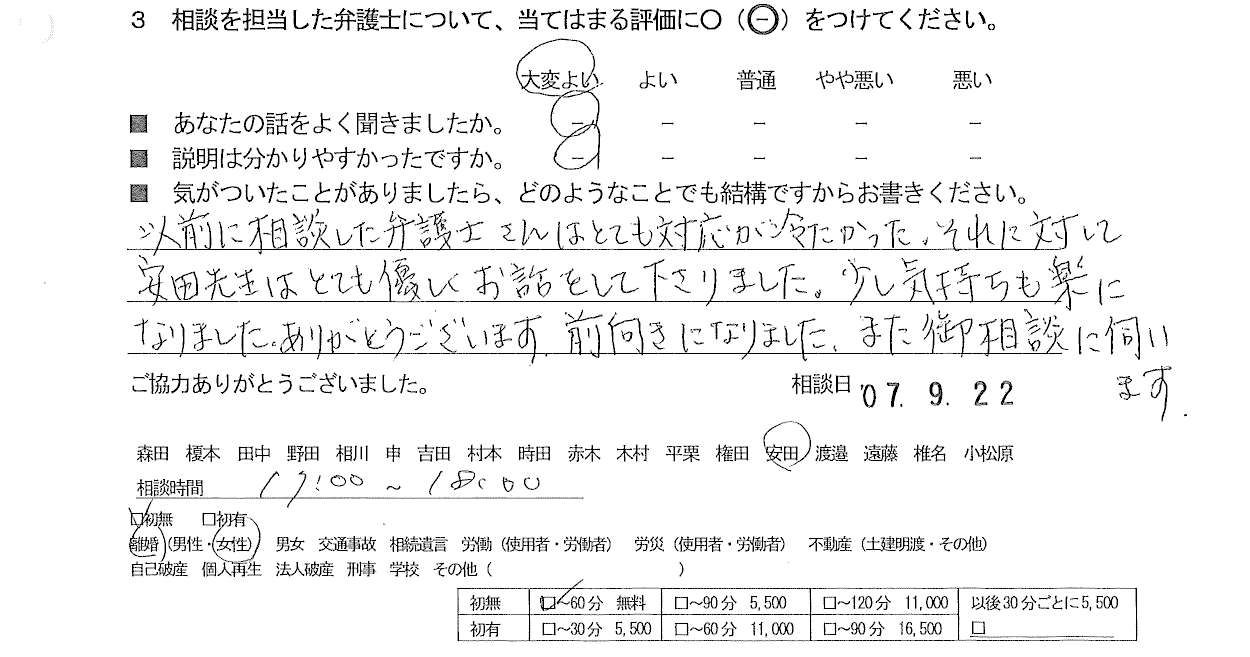 3 相談を担当した弁護士について、当てはまる評価に○(㊀)をつけてください。
大変よい よい 普通 やや悪い 悪い
■ あなたの話をよく聞きましたか。 － － － － －
■ 説明は分かりやすかったですか。 － － － － －
■ 気がついたことがありましたら、どのようなことでも結構ですからお書きください。
以前に相談した弁護士さんはとても対応が冷たかった。それに対して
安田先生はとても優しくお話をして下さりました。少し気持ちも楽に
なりました。ありがとうございます。前向きになりました。また御相談に伺い
ます.
ご協力ありがとうございました。 相談日 '07. 9. 22
森田 榎本 田中 野田 相川 申 吉田 村本 時田 赤木 木村 平栗 権田 安田 渡邉 遠藤 椎名 小松原
相談時間 17:00 ~ 18:00
□初無 □初有
離婚(男性・女性) 男女 交通事故 相続遺言 労働(使用者・労働者) 労災(使用者・労働者) 不動産(土建明渡・その他)
自己破産 個人再生 法人破産 刑事 学校 その他( )
初無 □～60分 無料 □～90分 5,500 □～120分 11,000 以後30分ごとに5,500
初有 □～30分 5,500 □～60分 11,000 □～90分 16,500 □